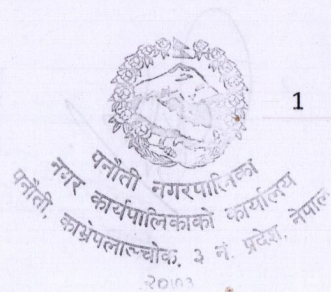 1
पनौती नगरपालिका
नगर कार्यपालिकाको कार्यालय
पनौती, काभ्रेपलाञ्चोक, ३ नं. प्रदेश, नेपाल